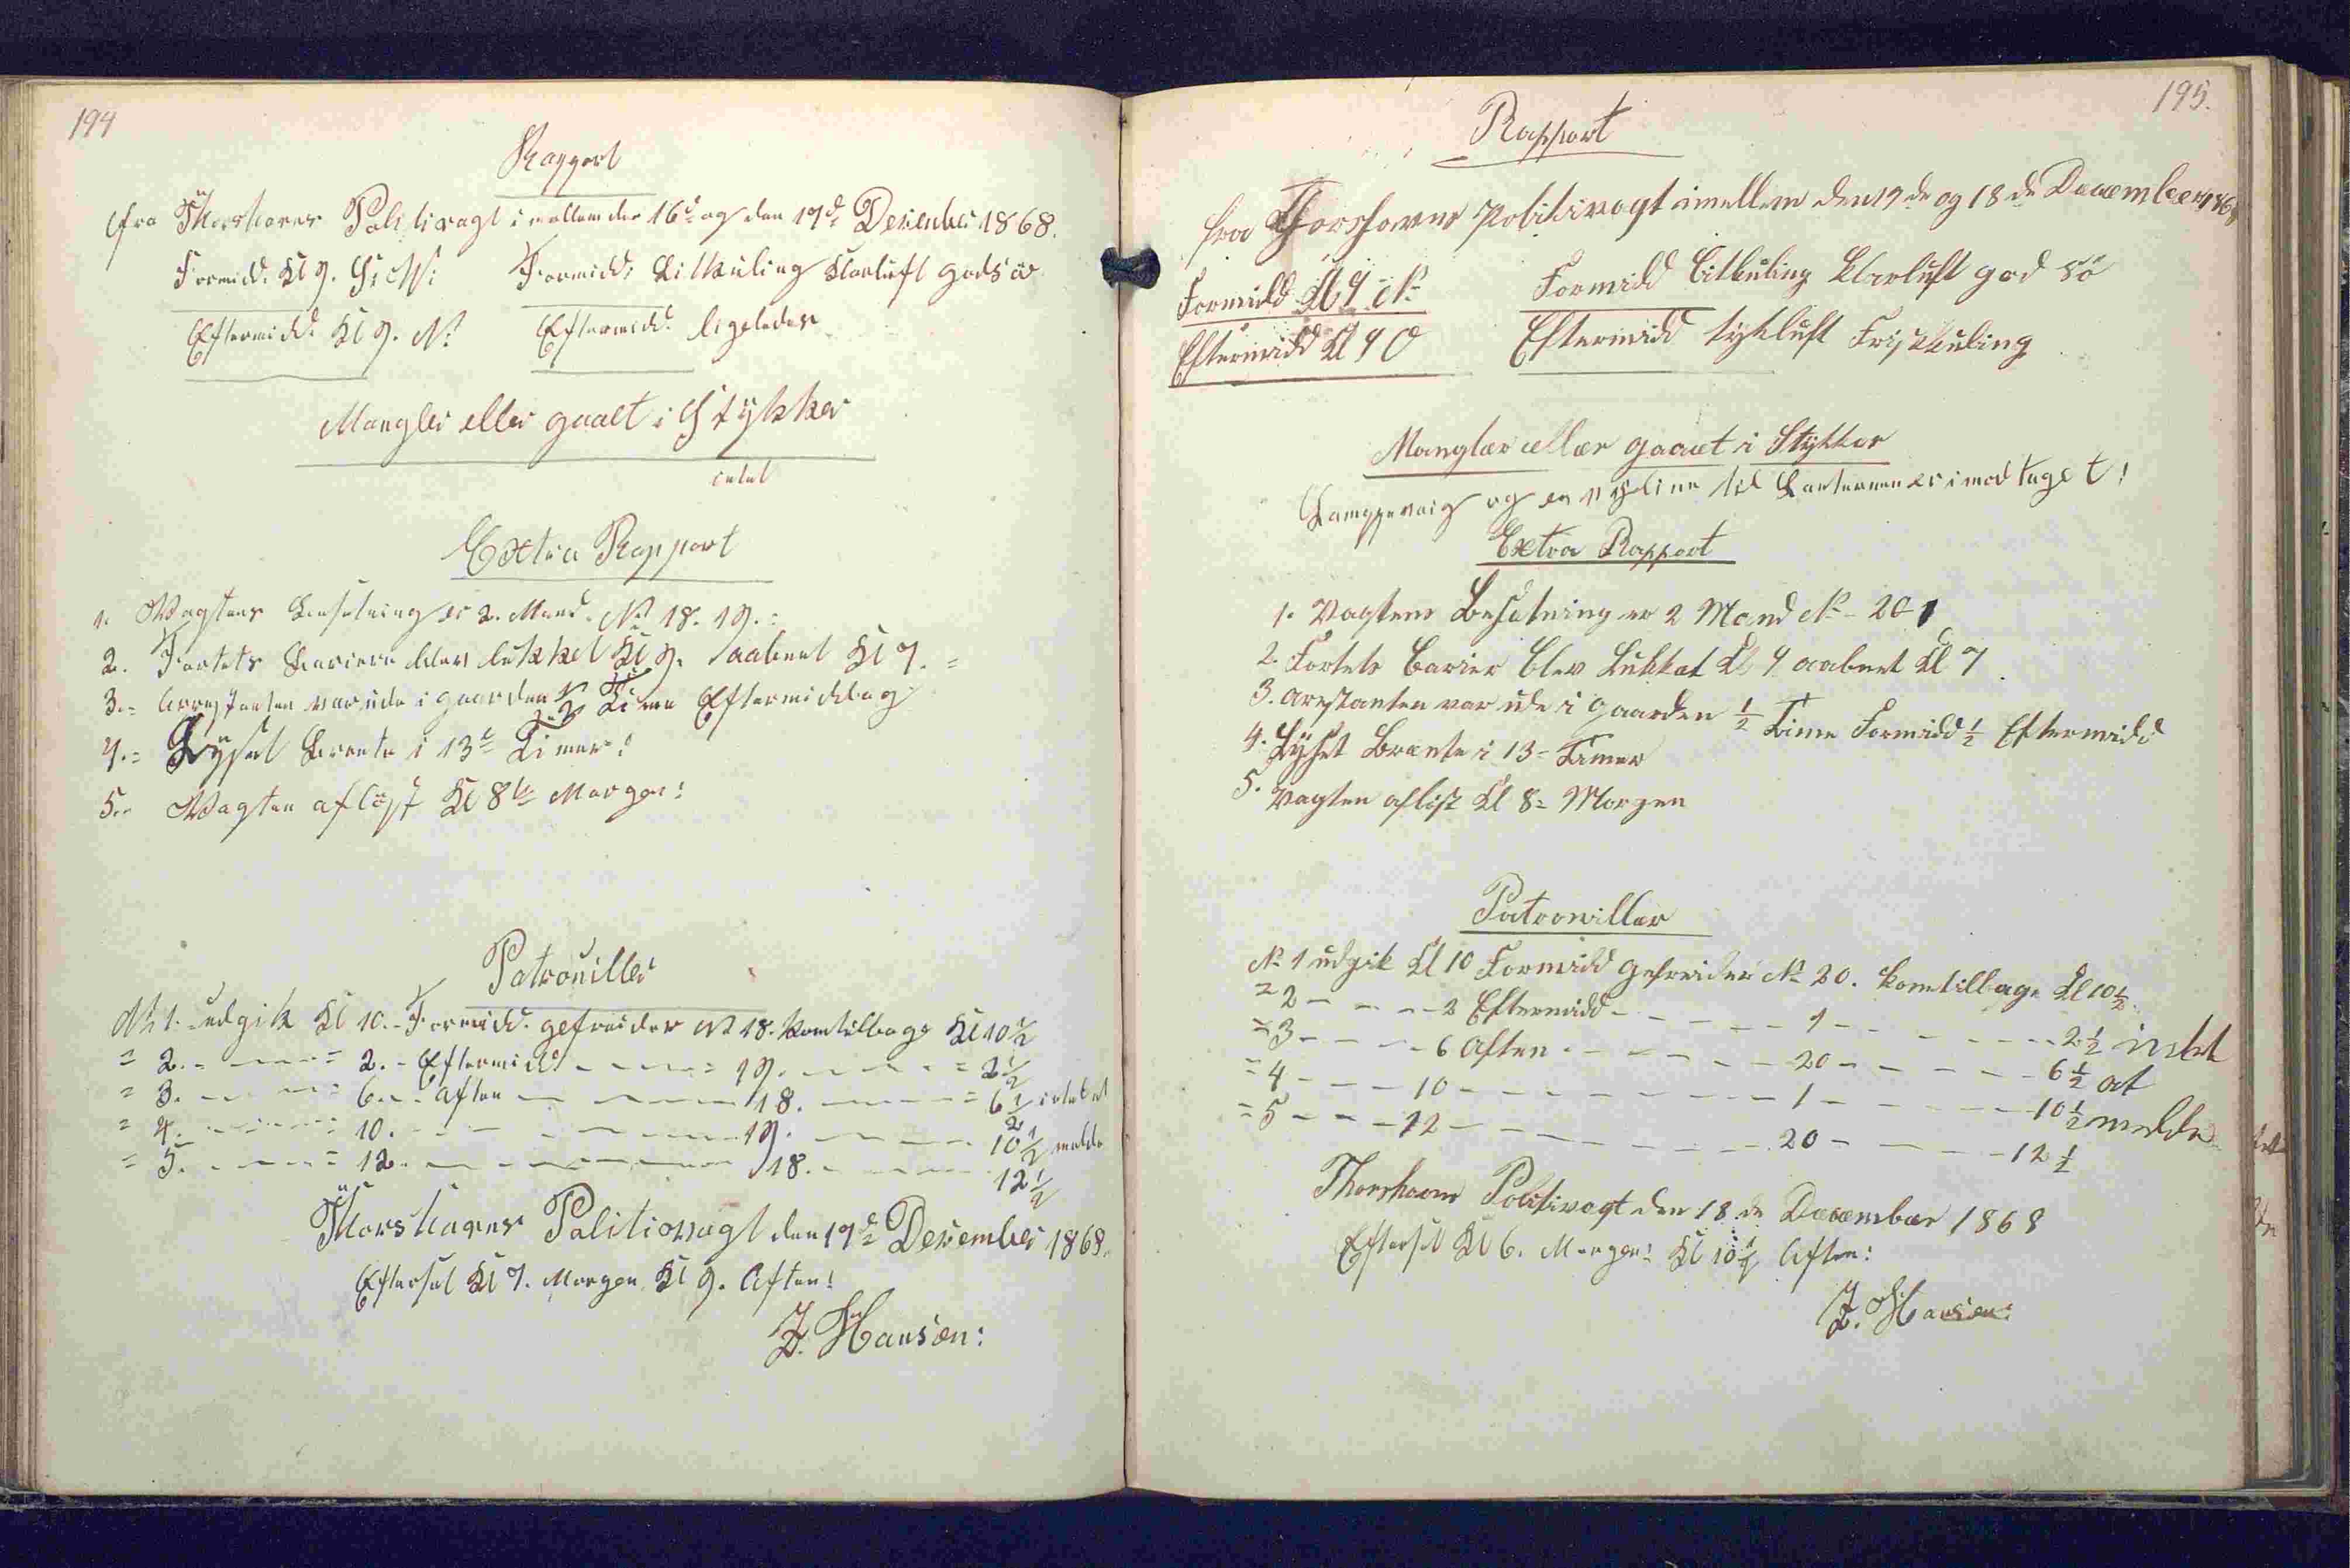 194
Rapport
fra Thorshavns Politivagt imellem den 16d og den 17d Desember 1868.
Formidd. Kl 9. S: W: Formidd: Litkuling Klarluft god sö
Eftermidd. Kl 9. N: Eftermidd. ligeledes
Mangler eller gaaet i Stykker
intet
Extra Rapport
1. Wagtens Besetning er 2. Mand. No 18. 19.:
2. Fortets Bariere blev lukket Kl 9. aabnet Kl 7. =
3.= Arrestanten var ude i gaarden 1/2 Time Eftermiddag
4.= Lyset Brente i 13t Timer:
5.= Wagten aflöst Kl 8te Morgen:
Patrouiller
No 1. udgik Kl 10.- Formidd. gefreider No 18. kom tilbage Kl 10 1/2
= 2. - - - = 2. - Eftermidd - - - = 19. - - - = 2 1/2
= 3. - - - = 6. - Aften - - - 18. - - - = 6 1/2 intet at
= 4. - - - = 10. - - - 19. - - - 10 1/2 melde
= 5. - - - = 12. - - - 18. - - - 12 1/2
Thorshavns Politivagt den 17d Desember 1868.
Efterset Kl 7. Morgen Kl 9. Aften!
J. Hansen:
195.
Rapport
fra Thorshavns Politivagt imellem den 17de og 18de Decemember 1868
Formidd Kl 9 N Formidd Litkuling Klarluft god sö
Eftermidd Kl 9 O Eftermidd tykluft Friskkuling
Mangler eller gaaet i Stykker
Lampevaig og en til Lanternen er imodtaget!
Extra Rapport
1. Vagtens Besætning er 2 Mand No - 20 1
2. Fortets Barier blev Lukket Kl 9 aabnet Kl 7
3. arestanten var ude i Gaarden 1/2 Time Formidd 1/2 Eftermidd
4. Lyset Brænte i 13 - Timer
5. Vagten aflöst Kl 8 = Morgen
Patrouiller
No 1 udgik Kl 10 Formidd gefreider No 20. kom tilbage Kl 10 1/2
= 2 - - - 2 Eftermidd - - - 1 - - - 2 1/2 intet
= 3 - - - 6 Aften - - - 20 - - - 6 1/2 at
= 4 - - - 10 - - - 1 - - - 10 1/2 melde
= 5 - - - 12 - - - 20 - - - 12 1/2
Thorshavns Politivagt den 18 de December 1868
Efterset Kl 6. Morgen: Kl 10 1/2 Aften:
J. Hansen: